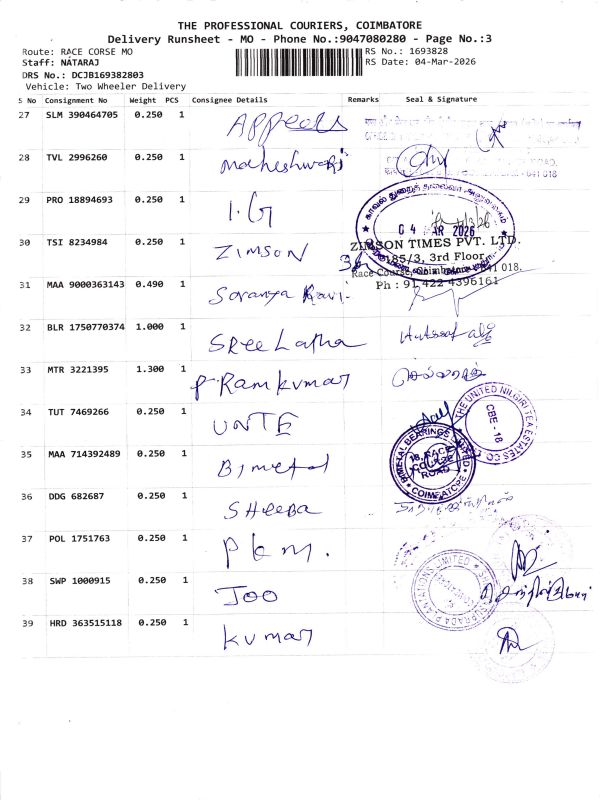 THE PROFESSIONAL COURIERS, COIMBATORE
Delivery Runsheet - MO - Phone No.:9047080280 - Page No.:3
Route: RACE CORSE MO
RS No.: 1693828
Staff: NATARAJ
RS Date: 04-Mar-2026
DRS No.: DCJB169382803
Vehicle: Two Wheeler Delivery
S No Consignment No Weight PCS Consignee Details Remarks Seal & Signature
27 SLM 390464705 0.250 1 Appeals
28 TVL 2996260 0.250 1 Maheshwari
29 PRO 18894693 0.250 1 I.G
04 MAR 2026
30 TSI 8234984 0.250 1 ZIMSON
ZIMSON TIMES PVT. LTD.
185/3, 3rd Floor,
Race Course, Coimbatore - 641 018.
Ph : 91 422 4396161
31 MAA 9000363143 0.490 1 Soranya Ravi
32 BLR 1750770374 1.000 1 SREE Latha
33 MTR 3221395 1.300 1 P. Ramkumar
34 TUT 7469266 0.250 1 UNTE
THE UNITED NILGIRI TEA ESTATES CO.
CBE - 18
35 MAA 714392489 0.250 1 Bimetal
BIMETAL BEARINGS LIMITED
18, RACE COURSE ROAD
COIMBATORE
36 DDG 682687 0.250 1 SHEEBA
37 POL 1751763 0.250 1 P k m.
38 SWP 1000915 0.250 1 JOO
39 HRD 363515118 0.250 1 kumar